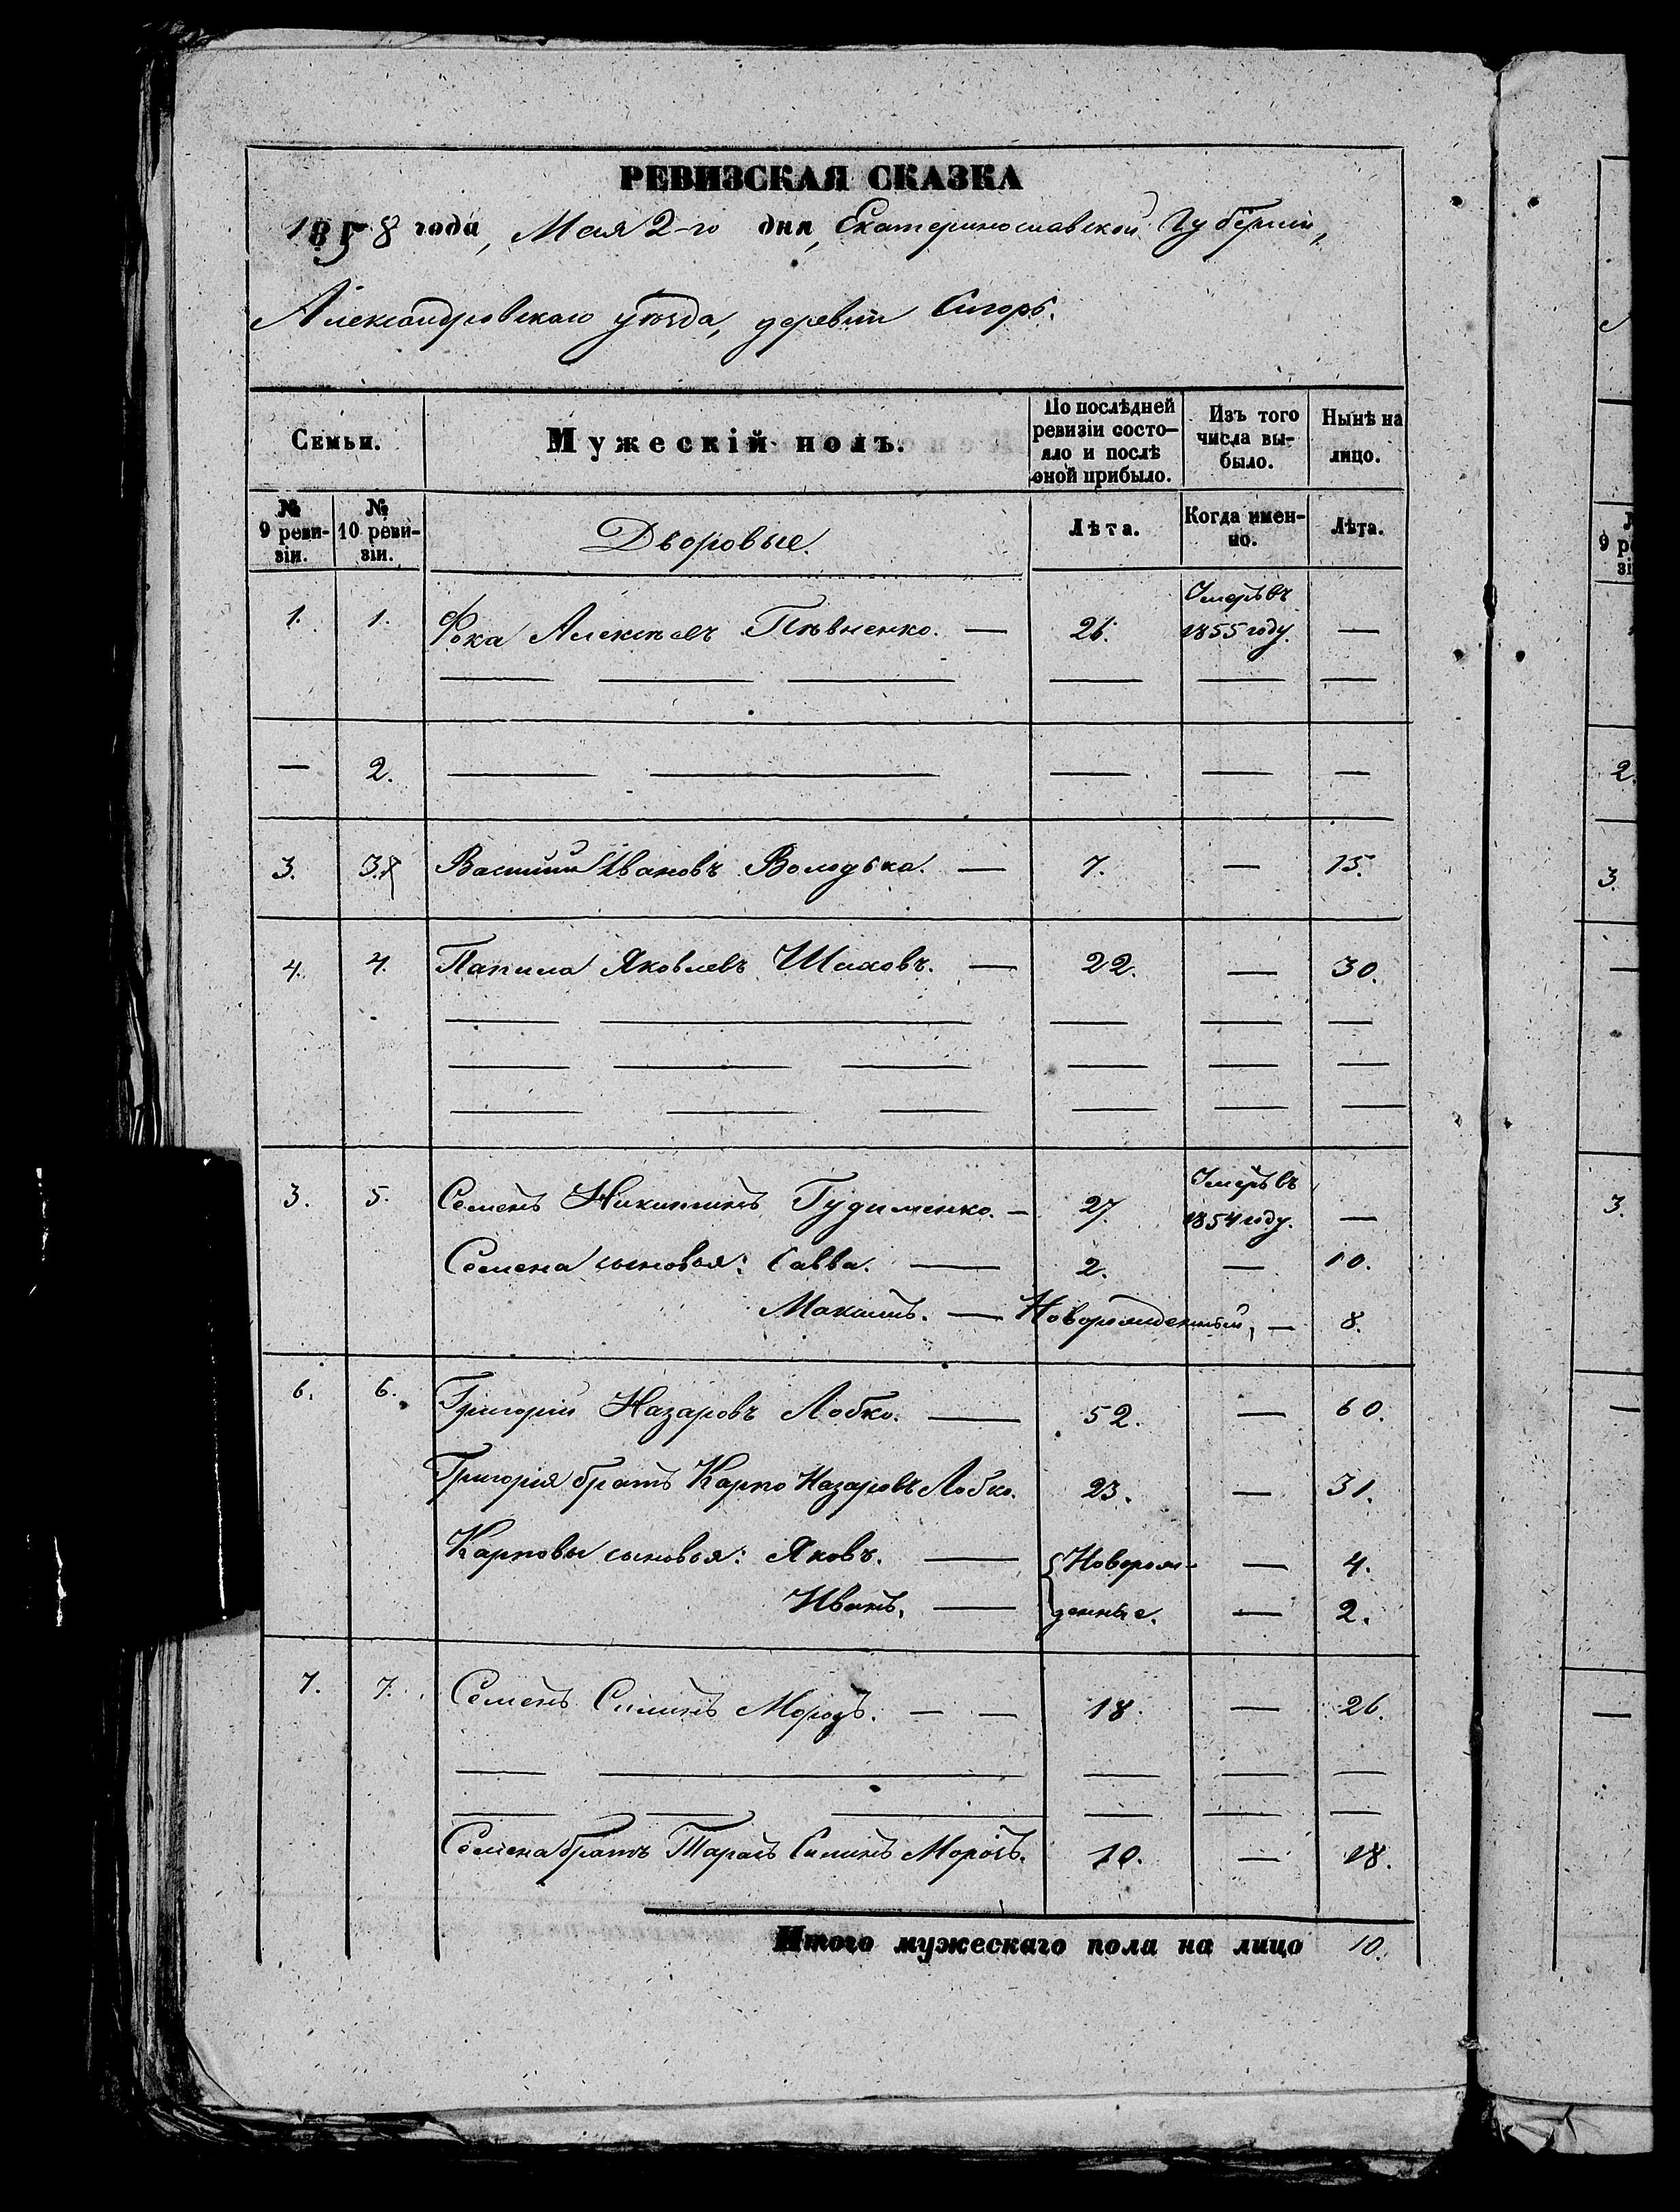 РЕВИЗСКАЯ СКАЗКА
1858 года, Мая 2-го дня, Екатеринославской Губерніи,
Александровскаго уѣзда, деревни
Семьи.
Мужескій полъ.
По послѣдней ревизіи состо-
яло и послѣ
оной прибыло.
Изъ того
числа вы-
было.
Нынѣ на
лицо.
№
9 реви-
зіи.
№
10 реви-
зіи.
Дворовые.
Лѣта.
Когда имен-
но.
Лѣта.
1. 1. Фока Алексѣевъ Пѣвненко. — 26. Умеръ въ
1855 году. —
— 2. — — — — —
3. 3. Василій Ивановъ Володька. — 7. — 15.
4. 4. Яковлевъ — 22. — 30.
3. 5. Семенъ Никитинъ Гудименко. — 27. Умеръ въ
1854 году. —
Семена сыновья: Савва. — 2. — 10.
Максимъ. — Новорожденный, — 8.
6. 6. Григорій Назаровъ Лобко. — 52. — 60.
Григорія братъ Карпо Назаровъ Лобко. 23. — 31.
Карповы сыновья: Яковъ. — Новорож- — 4.
Иванъ. — денные. — 2.
7. 7. Семенъ Силинъ Морозъ. — — 18. — 26.
Семена братъ Тарасъ Силинъ Морозъ. 10. — 18.
Итого мужескаго пола на лицо 10.
9 ре
зі
2.
3.
3.